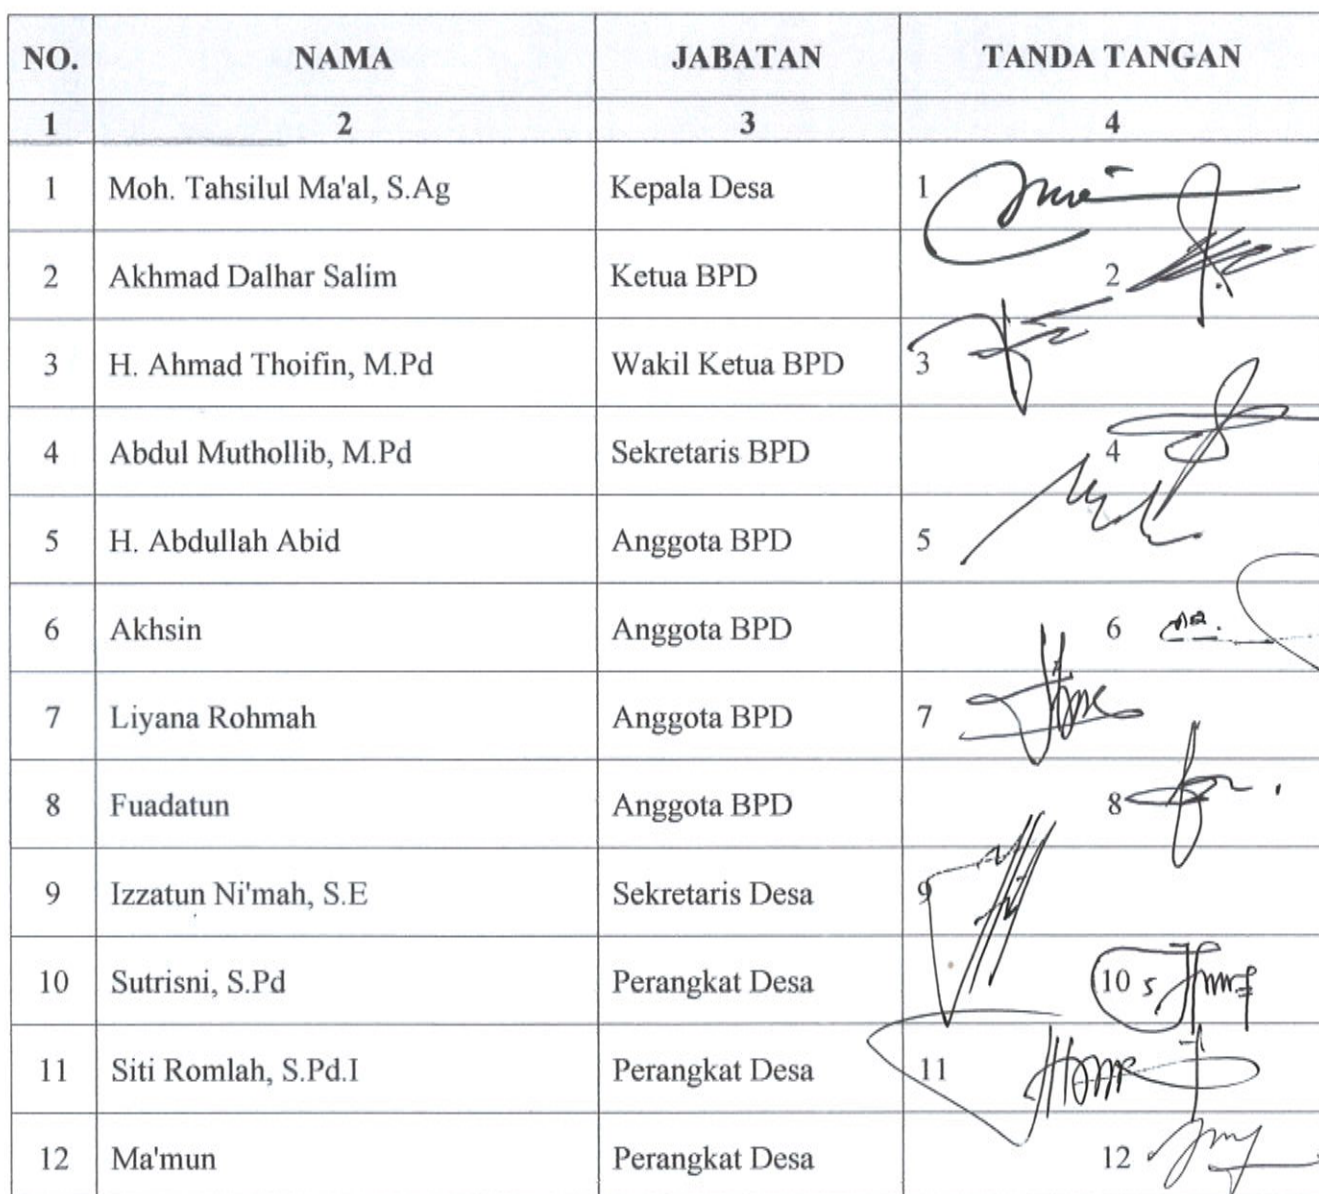 NO. NAMA JABATAN TANDA TANGAN
1 2 3 4
1 Moh. Tahsilul Ma'al, S.Ag Kepala Desa 1
2 Akhmad Dalhar Salim Ketua BPD 2
3 H. Ahmad Thoifin, M.Pd Wakil Ketua BPD 3
4 Abdul Muthollib, M.Pd Sekretaris BPD 4
5 H. Abdullah Abid Anggota BPD 5
6 Akhsin Anggota BPD 6
7 Liyana Rohmah Anggota BPD 7
8 Fuadatun Anggota BPD 8
9 Izzatun Ni'mah, S.E Sekretaris Desa 9
10 Sutrisni, S.Pd Perangkat Desa 10
11 Siti Romlah, S.Pd.I Perangkat Desa 11
12 Ma'mun Perangkat Desa 12